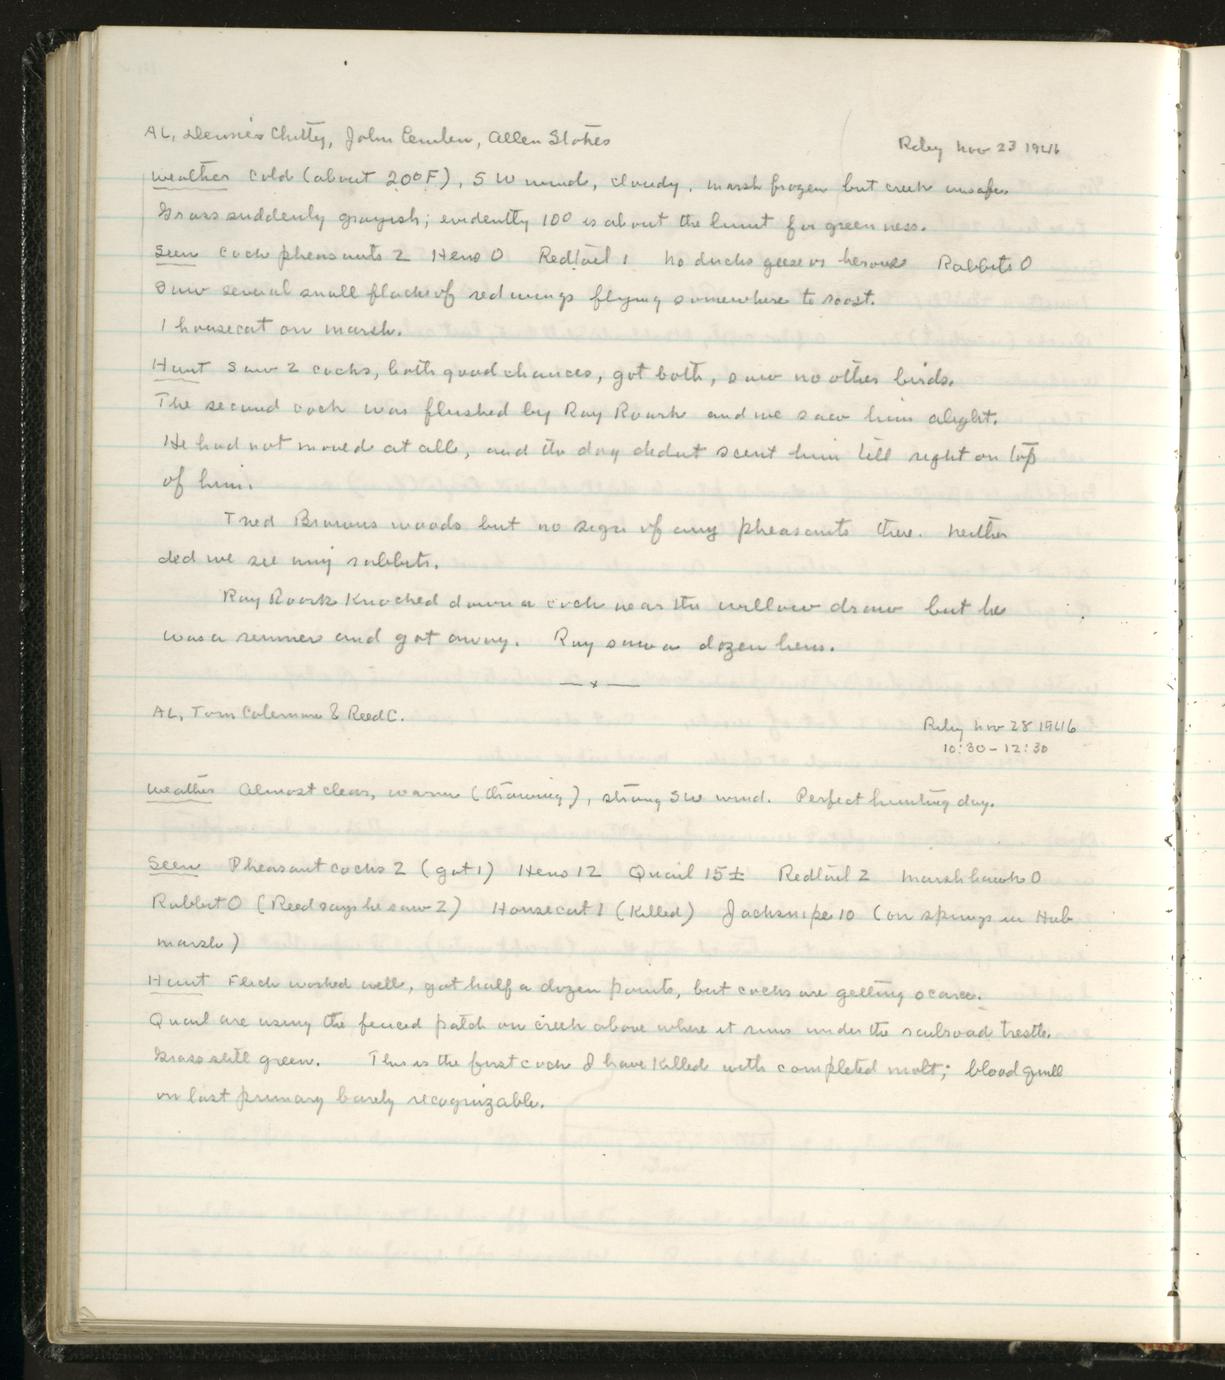 AL, Dennis Chitty, John Emlen, Allen Stokes
Riley Nov 23 1946
Weather Cold (about 20°F), SW wind, cloudy, marsh frozen but creek unsafe.
Grass suddenly grayish; evidently 10° is about the limit for greenness.
Seen Cock pheasants 2 Hens 0 Redtail 1 No ducks geese or herons Rabbits 0
Saw several small flocks of redwings flying somewhere to roost.
1 housecat on marsh.
Hunt Saw 2 cocks, both good chances, got both, saw no other birds.
The second cock was flushed by Ray Roark and we saw him alight.
He had not moved at all, and the dog didnt scent him till right on top
of him.
Tried Browns woods but no sign of any pheasants there. Neither
did we see any rabbits.
Ray Roark knocked down a cock near the willow draw but he
was a runner and got away. Ray saw a dozen hens.
— x —
AL, Tom Coleman & Reed C.
Riley Nov 28 1946
10:30-12:30
Weather Almost clear, warm (thawing), strong SW wind. Perfect hunting day.
Seen Pheasant cocks 2 (got 1) Hens 12 Quail 15± Redtail 2 Marsh hawk 0
Rabbit 0 (Reed says he saw 2) Housecat 1 (killed) Jacksnipe 10 (on springs in Hub
marsh)
Hunt Flick worked well, got half a dozen points, but cocks are getting scarce.
Quail are using the fenced patch on creek above where it runs under the railroad trestle.
Grass still green. This is the first cock I have killed with completed molt; blood quill
on last primary barely recognizable.